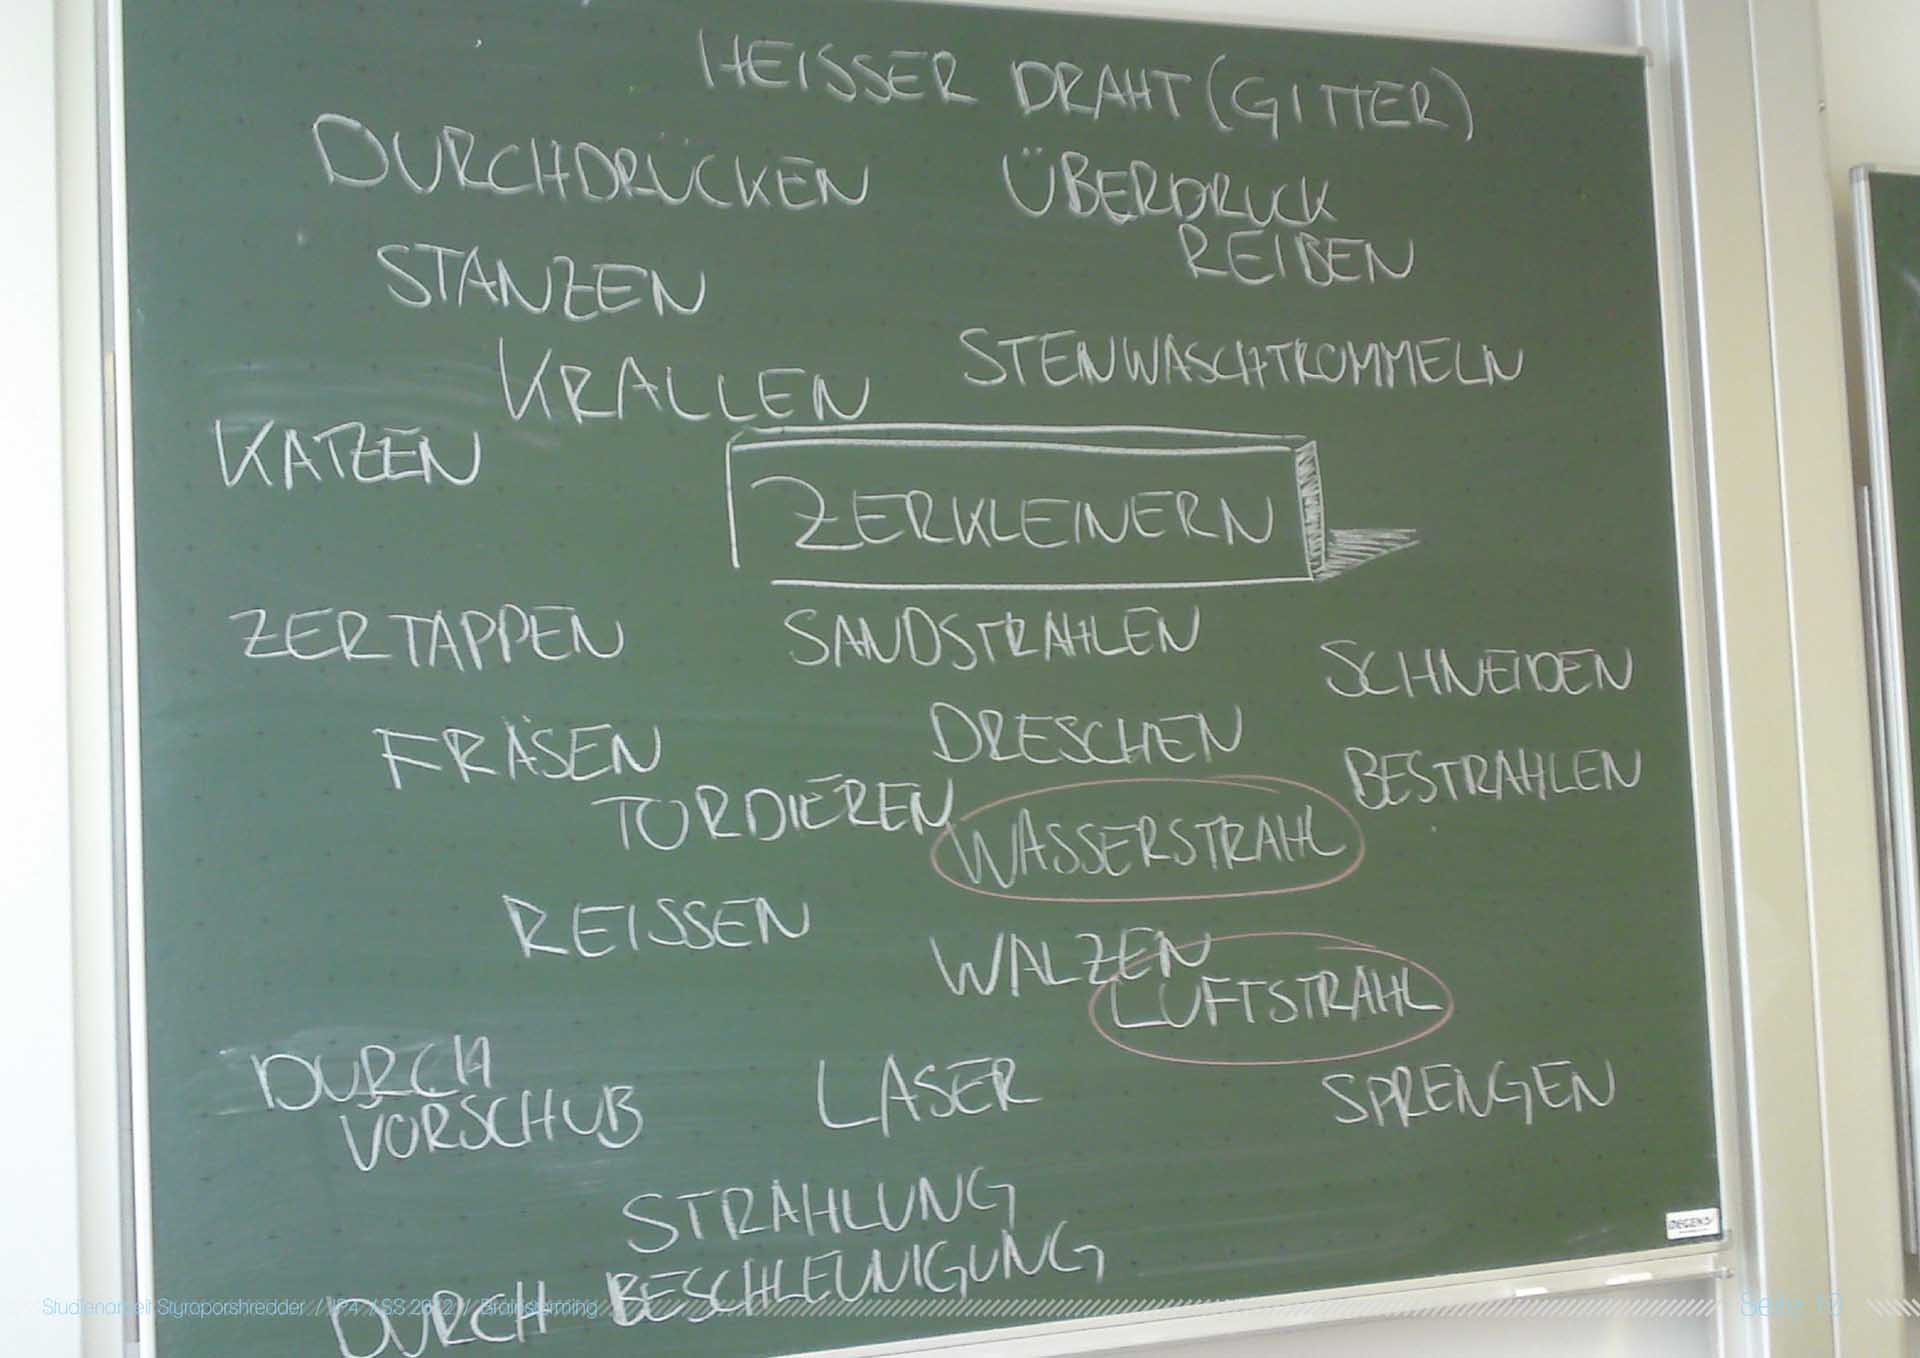 HEISSER DRAHT (GITTER)
DURCHDRÜCKEN
ÜBERDRUCK
REIBEN
STANZEN
STENWASCHTROMMELN
KRALLEN
KATZEN
ZERKLEINERN
ZERTAPPEN
SANDSTRAHLEN
SCHNEIDEN
FRÄSEN
DRESCHEN
BESTRAHLEN
TORDIEREN
WASSERSTRAHL
REISSEN
WALZEN
LUFTSTRAHL
DURCH
VORSCHUB
LASER
SPRENGEN
STRAHLUNG
DURCH BESCHLEUNIGUNG
Studienarbeit Styroporshredder / IP4 / SS 2012 / Brainstorming
Seite 10